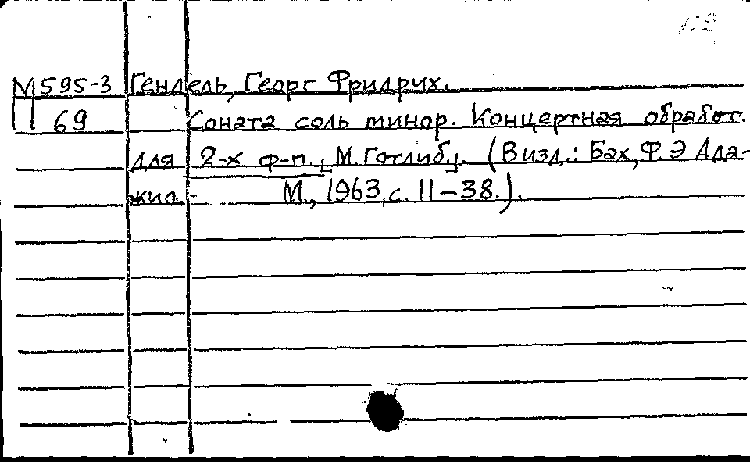 М595-3 Гендель, Георг Фридрих.
69 Соната соль минор. Концертная обработ.
для 2-х ф-п. М. Готлиб. (В изд.: Бах, Ф.Э Ада-
жио. - М., 1963, с. 11-38.).